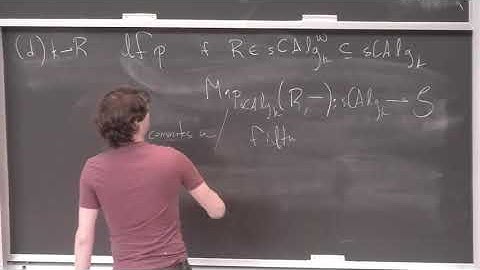 (d) k→R lfp if R ∈ sCAlg_k^ω ⊆ sCAlg_k
Map_{sCAlg_k}(R, –): sCAlg_k → S
commutes w/ filt